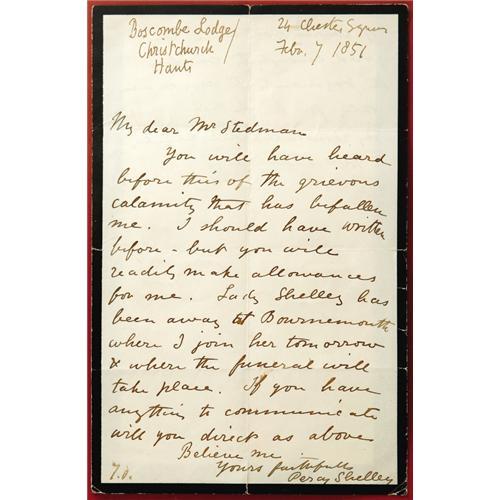 Boscombe Lodge/
Christchurch
Hants
24 Chester Square
Feb. 7 1851
My dear Mr Stedman
You will have heard
before this of the grievous
calamity that has befallen
me. I should have written
before - but you will
readily make allowances
for me. Lady Shelley has
been away at Bournemouth
where I join her tomorrow
& where the funeral will
take place. If you have
anything to communicate
will you direct as above
Believe me
Yours faithfully
Percy Shelley